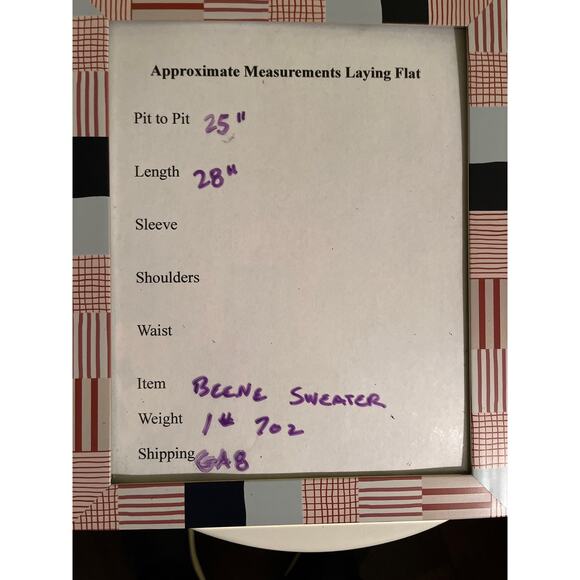 Approximate Measurements Laying Flat
Pit to Pit 25"
Length 28"
Sleeve
Shoulders
Waist
Item BEENE SWEATER
Weight 1# 7oz
Shipping GA8